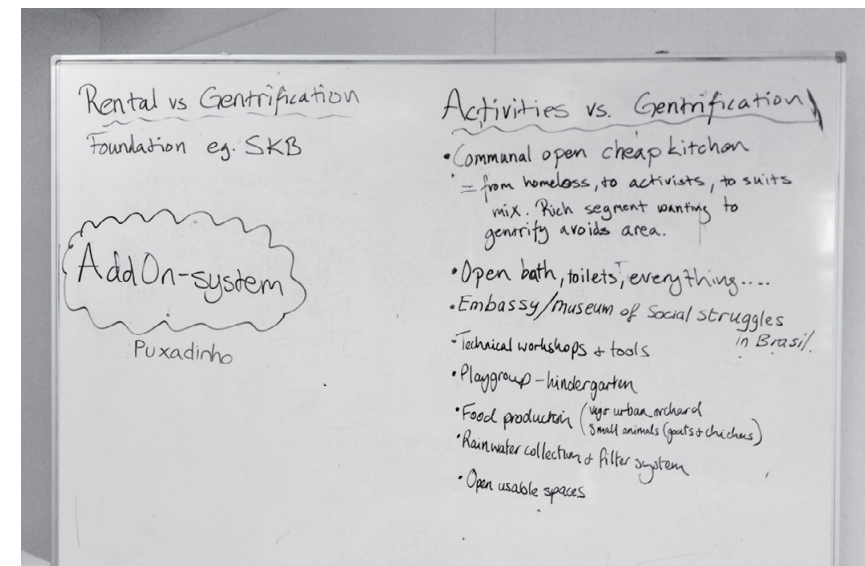 Rental vs Gentrification
Foundation eg. SKB
AddOn-system
Puxadinho
Activities vs. Gentrification
• Communal open cheap kitchen
= from homeless, to activists, to suits
mix. Rich segment wanting to
gentrify avoids area.
• Open bath, toilets, everything....
• Embassy/museum of Social struggles
in Brasil.
- Technical workshops + tools
• Playgroup - kindergarten
• Food production (vege urban orchard
small animals (goats + chickens)
• Rainwater collection + filter system
• Open usable spaces